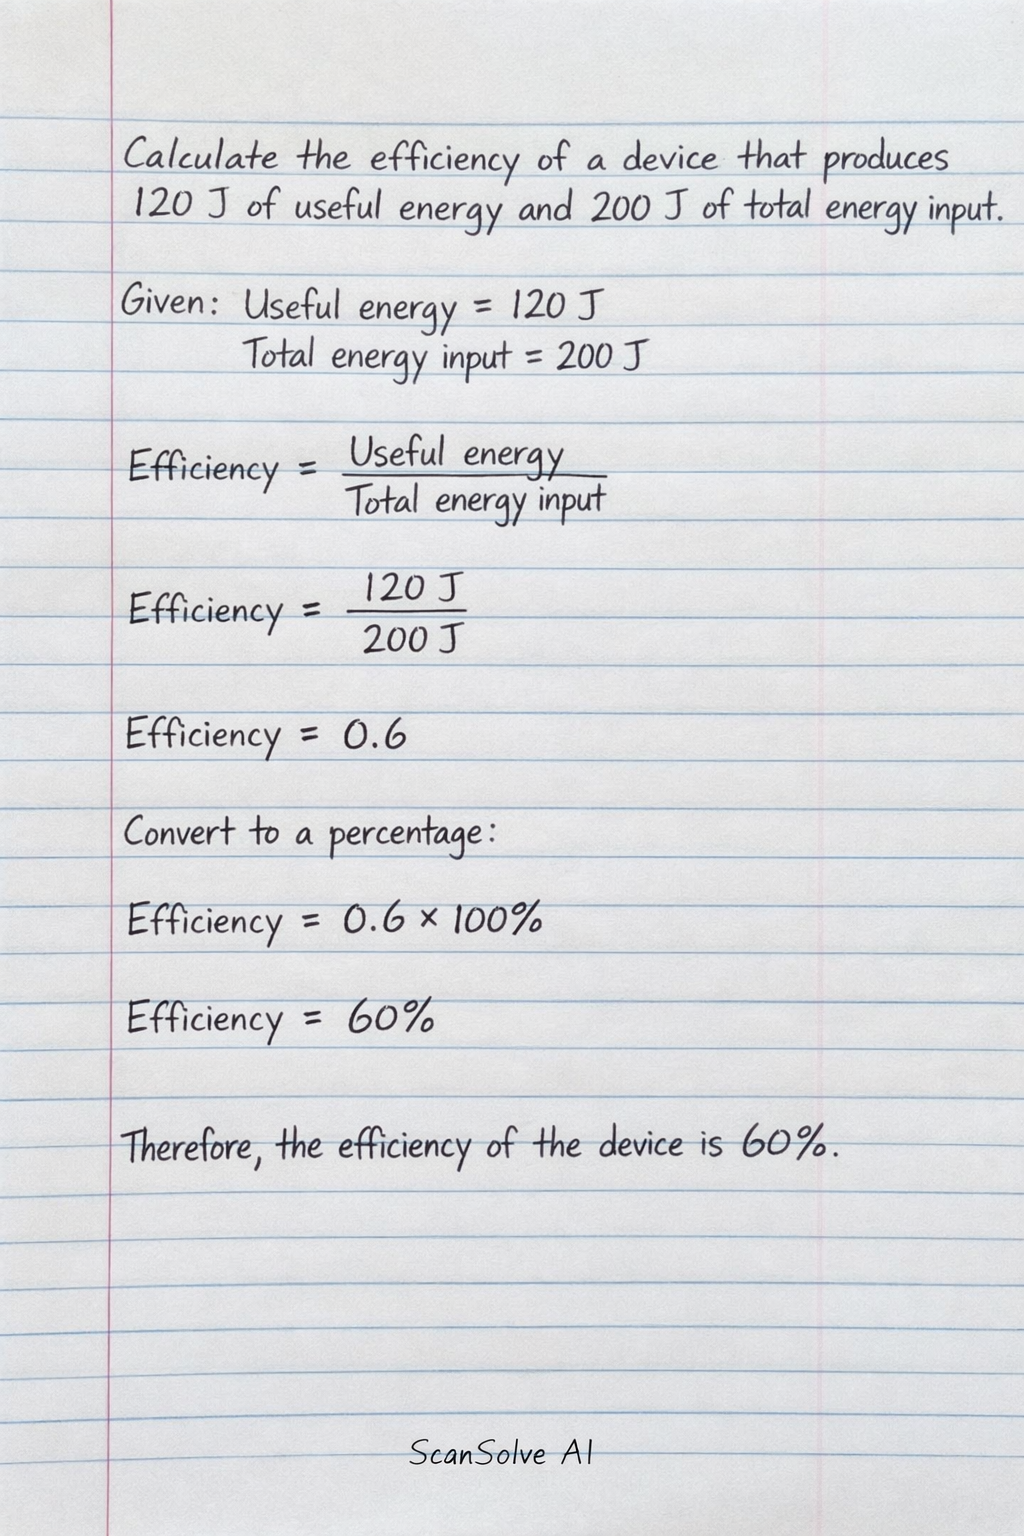 Calculate the efficiency of a device that produces
120 J of useful energy and 200 J of total energy input.
Given: Useful energy = 120 J
Total energy input = 200 J
Efficiency = Useful energy / Total energy input
Efficiency = 120 J / 200 J
Efficiency = 0.6
Convert to a percentage:
Efficiency = 0.6 × 100%
Efficiency = 60%
Therefore, the efficiency of the device is 60%.
ScanSolve AI